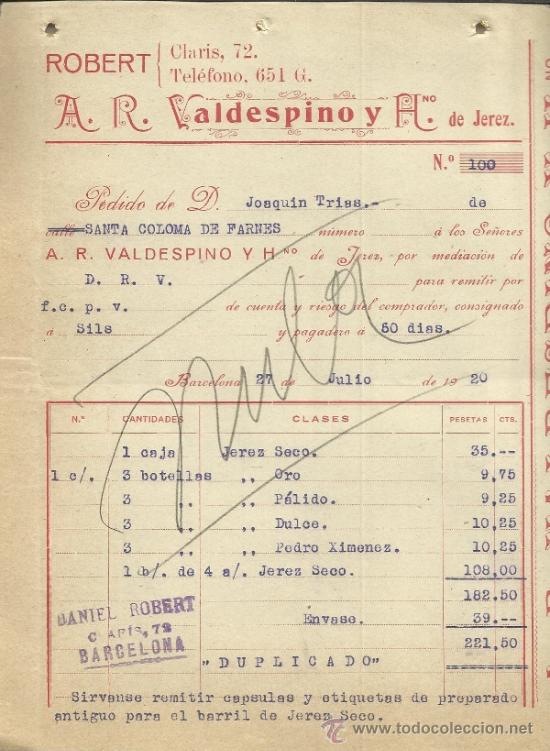 ROBERT Claris, 72.
Teléfono, 651 G.
A. R. Valdespino y Hno de Jerez.
N.º 100
Pedido de D. Joaquin Trias.- de
calle SANTA COLOMA DE FARNES número á los Señores
A. R. VALDESPINO Y Hno de Jerez, por mediación de
D. R. V. para remitir por
f.c. p.v. de cuenta y riesgo del comprador, consignado
á Sils y pagadero á 50 dias.
Barcelona 27 de Julio de 1920
Nula
N.º CANTIDADES CLASES PESETAS CTS.
1 caja Jerez Seco. 35.--
1 c/. 3 botellas ,, Oro 9,75
3 ,, ,, Pálido. 9,25
3 ,, ,, Dulce. 10,25
3 ,, ,, Pedro Ximenez. 10,25
1 b/. de 4 a/. Jerez Seco. 108,00
182.50
Envase. 39.--
221,50
DANIEL ROBERT
CLARÍS, 72
BARCELONA
"DUPLICADO"
Sirvanse remitir capsulas y etiquetas de preparado
antiguo para el barril de Jerez Seco.
todocoleccion
www.todocoleccion.net